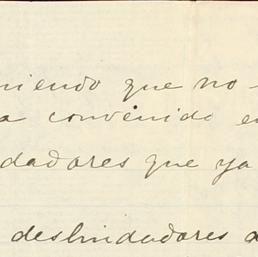 niendo que no
a convenido e
dadores que ya
deslindadores a